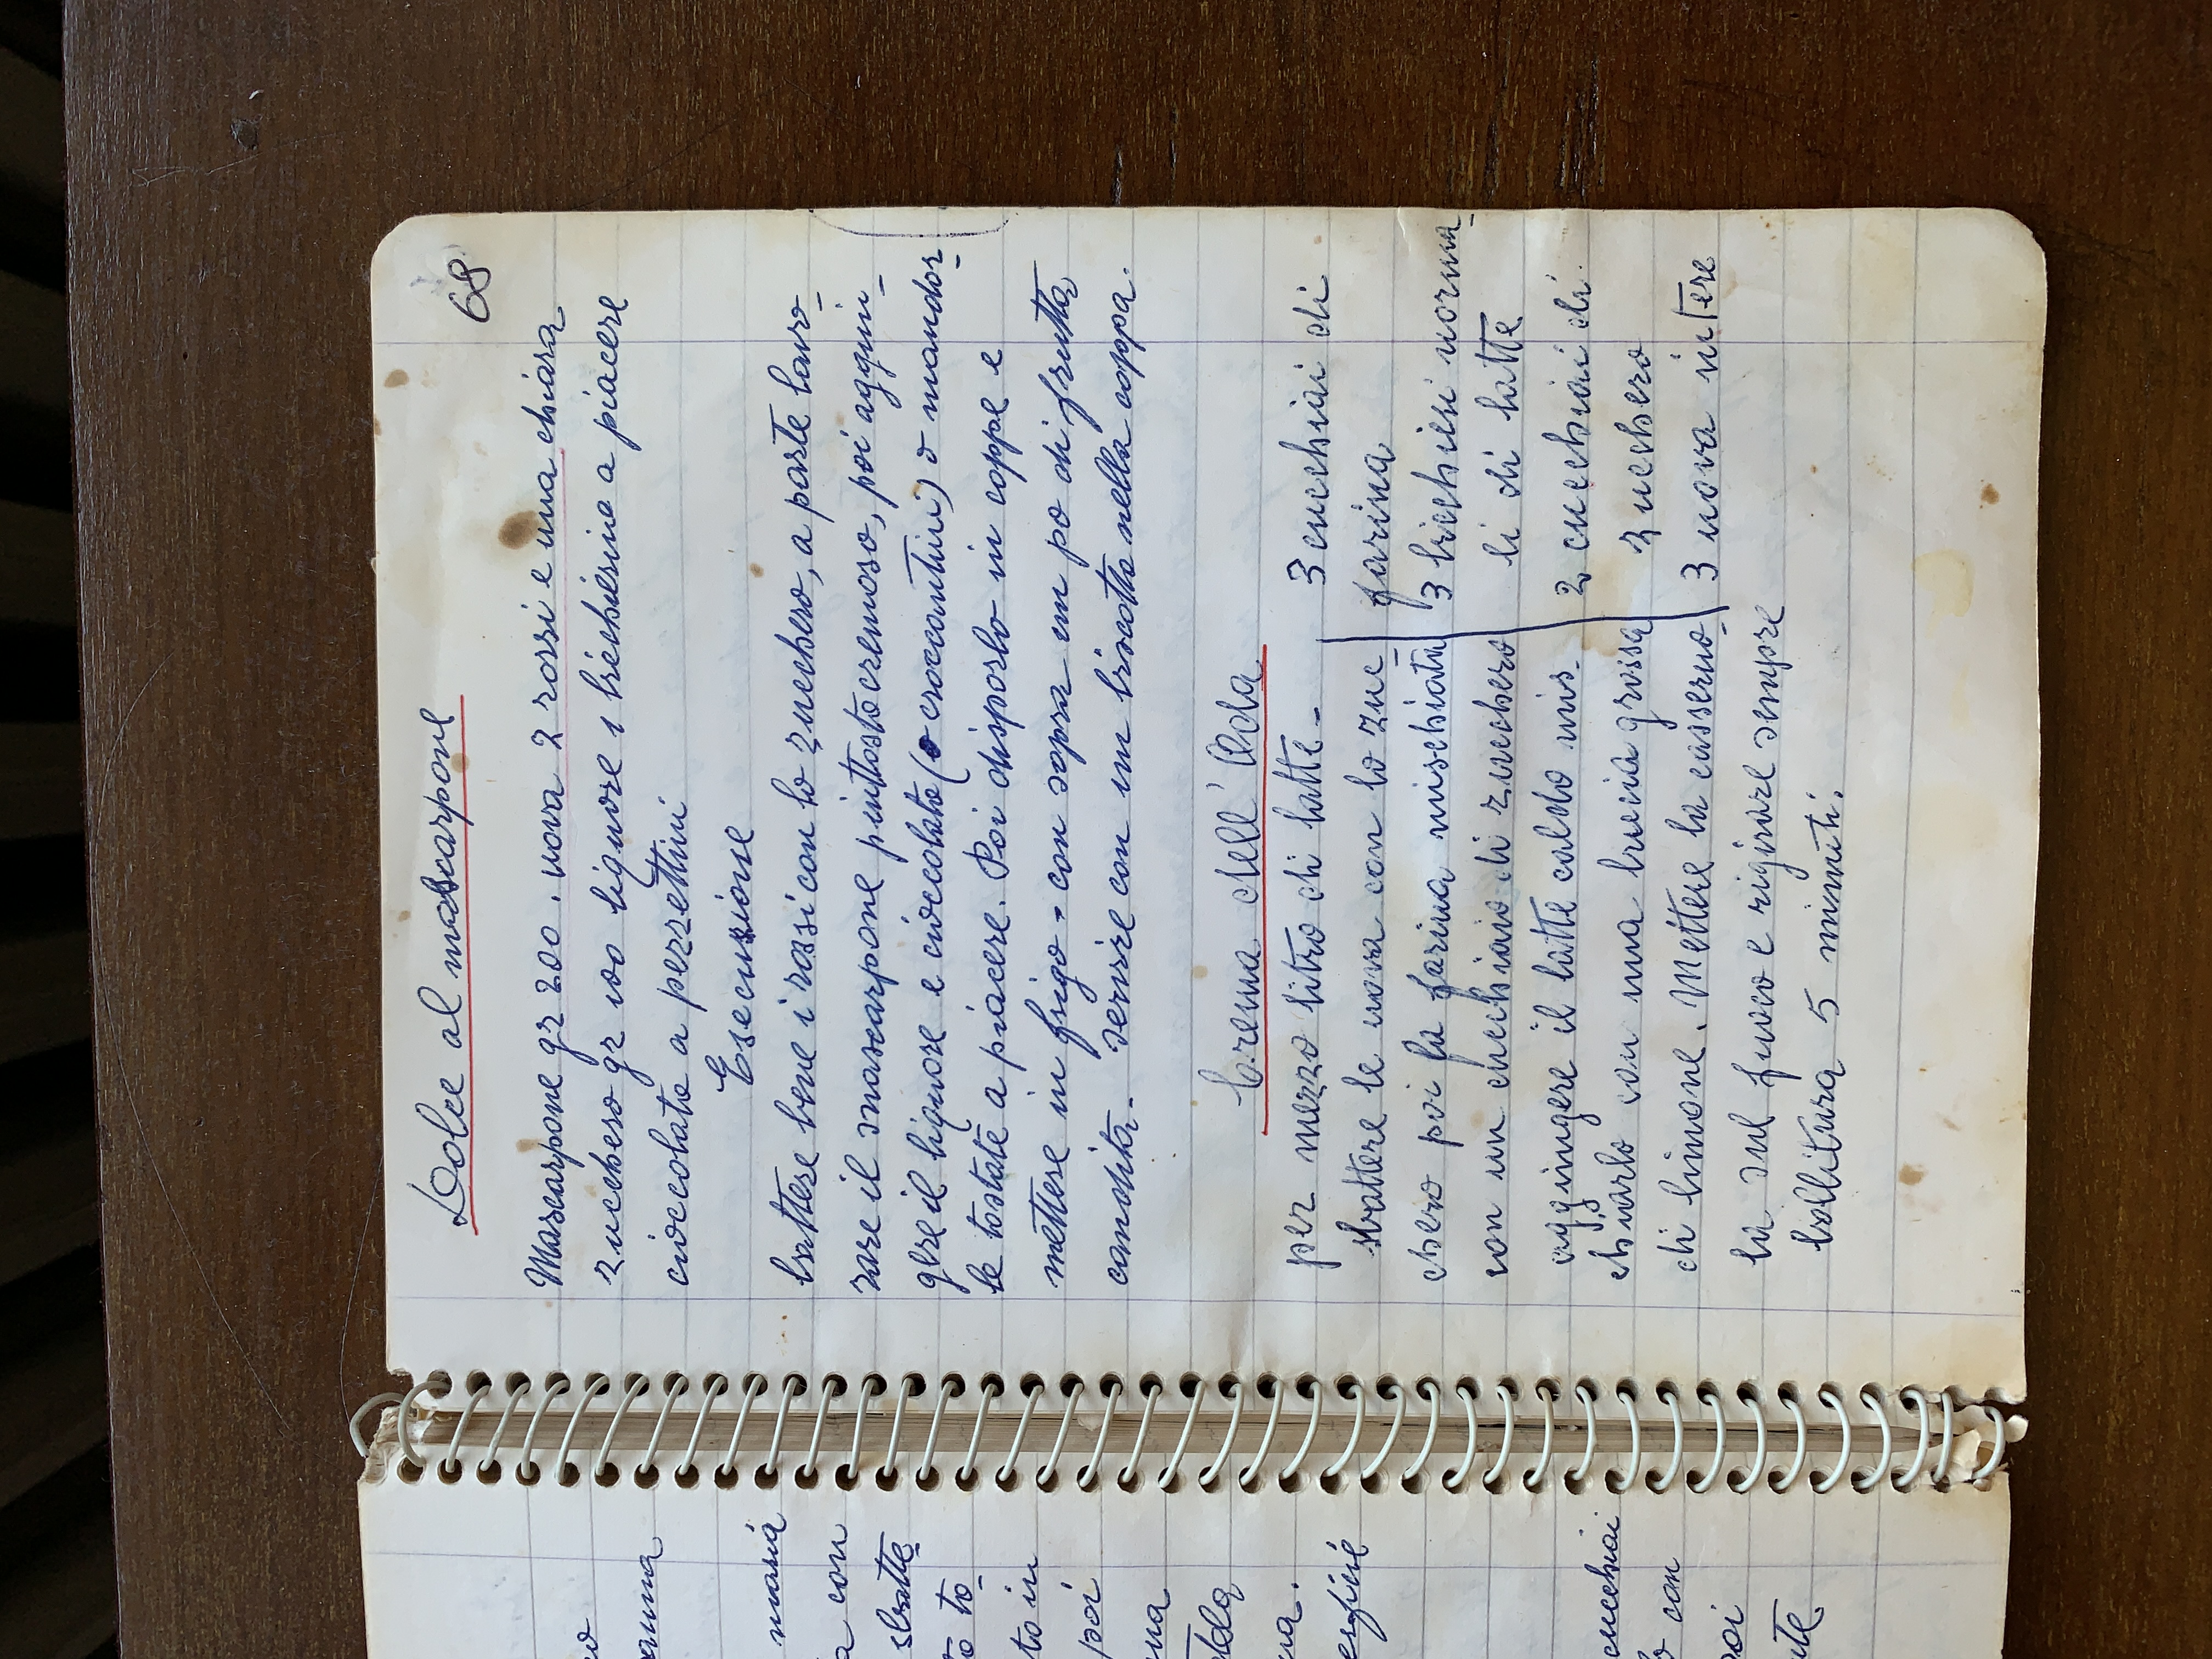 no
anna
maria
a con
sbatte
to to_
to in
poi
una
tela
na.
erficie
cucchiai
con
poi
nte
Dolce al mascarpone
68
Mascarpone gr 200 . uova 2 rossi e una chiara
zucchero gr 100 liquore 1 bicchierino a piacere
cioccolato a pezzettini
Esecuzione
battere bene i rossi con lo zucchero, a parte lavo_
rare il mascarpone piuttosto cremoso, poi aggiun_
gere il liquore e cioccolato (o croccantini) o mandor_
le tostate a piacere. Poi disporlo in coppe e
mettere in frigo - con sopra un po di frutta
candita - servire con un biscotto nella coppa.
Crema dell'Oda
per mezzo litro di latte -
sbattere le uova con lo zuc_
chero poi la farina mischiata
con un cucchiaio di zucchero
aggiungere il latte caldo mis_
chiarlo con una buccia grossa
di limone. Mettere la casseruo_
la sul fuoco e rigirare sempre
bollitura 5 minuti.
3 cucchiai di
farina
3 bicchieri norma_
li di latte
2 cucchiai di
zucchero
3 uova intere